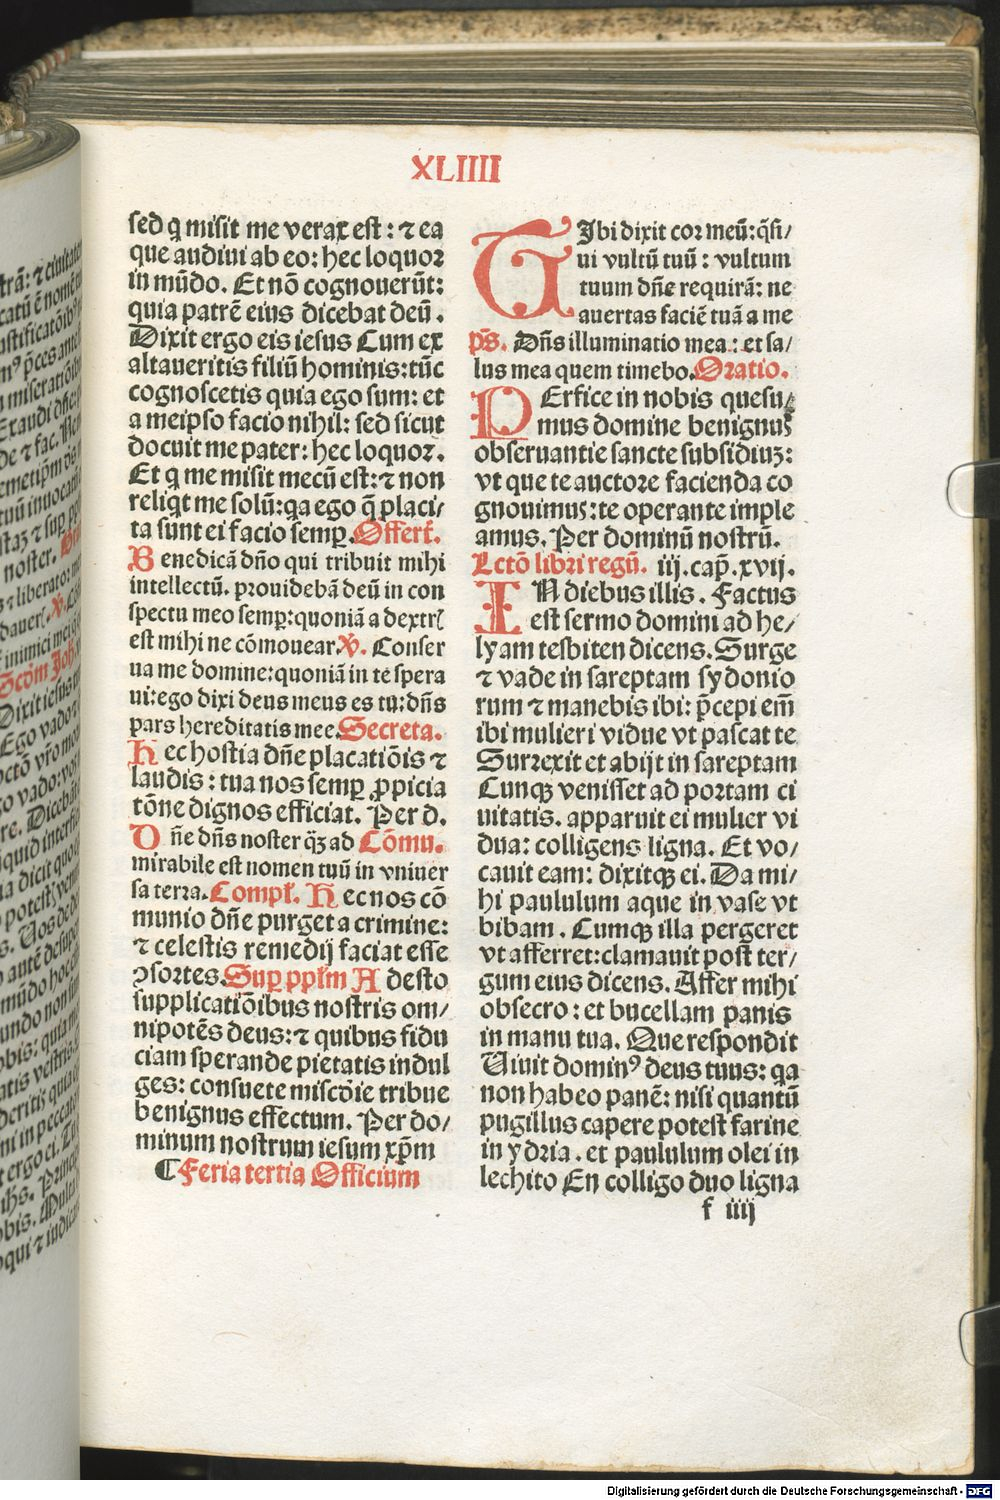 XLIIII
sed q misit me verax est: ⁊ ea
que audiui ab eo: hec loquor
in mũdo. Et nõ cognouerũt:
quia patrẽ eius dicebat deũ.
Dixit ergo eis iesus Cum ex
altaueritis filiũ hominis: tũc
cognoscetis quia ego sum: et
a meipso facio nihil: sed sicut
docuit me pater: hec loquor.
Et q me misit mecũ est: ⁊ non
reliqt me solũ: qa ego q̃ placi/
ta sunt ei facio semp. Offert.
Benedicã dño qui tribuit mihi
intellectũ. prouidebã deũ in con
spectu meo semp: quoniã a dextrꝭ
est mihi ne cõmouear. ꝟ. Conser
ua me domine: quoniã in te spera
ui: ego dixi deus meus es tu: dñs
pars hereditatis mee. Secreta.
Hec hostia dñe placatiõis ⁊
laudis: tua nos semp ꝓpicia
tõne dignos efficiat. Per d.
Dñe dñs noster q̃ꝫ ad Cõmu.
mirabile est nomen tuũ in vniuer
sa terra. Compl. Hec nos cõ
munio dñe purget a crimine:
⁊ celestis remedij faciat esse
ꝯsortes. Sup pplm Adesto
supplicatiõibus nostris om/
nipotẽs deus: ⁊ quibus fidu
ciam sperande pietatis indul
ges: consuete miscõie tribue
benignus effectum. Per do/
minum nostrum iesum xpm
¶ Feria tertia Officium
TIbi dixit cor meũ: q̃si/
ui vultũ tuũ: vultum
tuum dñe requirã: ne
auertas faciẽ tuã a me
ps. Dñs illuminatio mea: et sa/
lus mea quem timebo. Oratio.
PErfice in nobis quesu/
mus domine benignus
obseruantie sancte subsidiuꝫ:
vt que te auctore facienda co
gnouimus: te operante imple
amus. Per dominũ nostrũ.
Lctõ libri regũ. iij. cap. xvij.
IN diebus illis. Factus
est sermo domini ad he/
lyam tesbiten dicens. Surge
⁊ vade in sareptam sydonio
rum ⁊ manebis ibi: p̃cepi em̃
ibi mulieri vidue vt pascat te
Surrexit et abijt in sareptam
Cunqꝫ venisset ad portam ci
uitatis. apparuit ei mulier vi
dua: colligens ligna. Et vo/
cauit eam: dixitqꝫ ei. Da mi/
hi paululum aque in vase vt
bibam. Cumqꝫ illa pergeret
vt afferret: clamauit post ter/
gum eius dicens. Affer mihi
obsecro: et bucellam panis
in manu tua. Que respondit
Viuit dominꝰ deus tuus: qa
non habeo panẽ: nisi quantũ
pugillus capere potest farine
in ydria. et paululum olei in
lechito En colligo duo ligna
f iiij
Digitalisierung gefördert durch die Deutsche Forschungsgemeinschaft - DFG